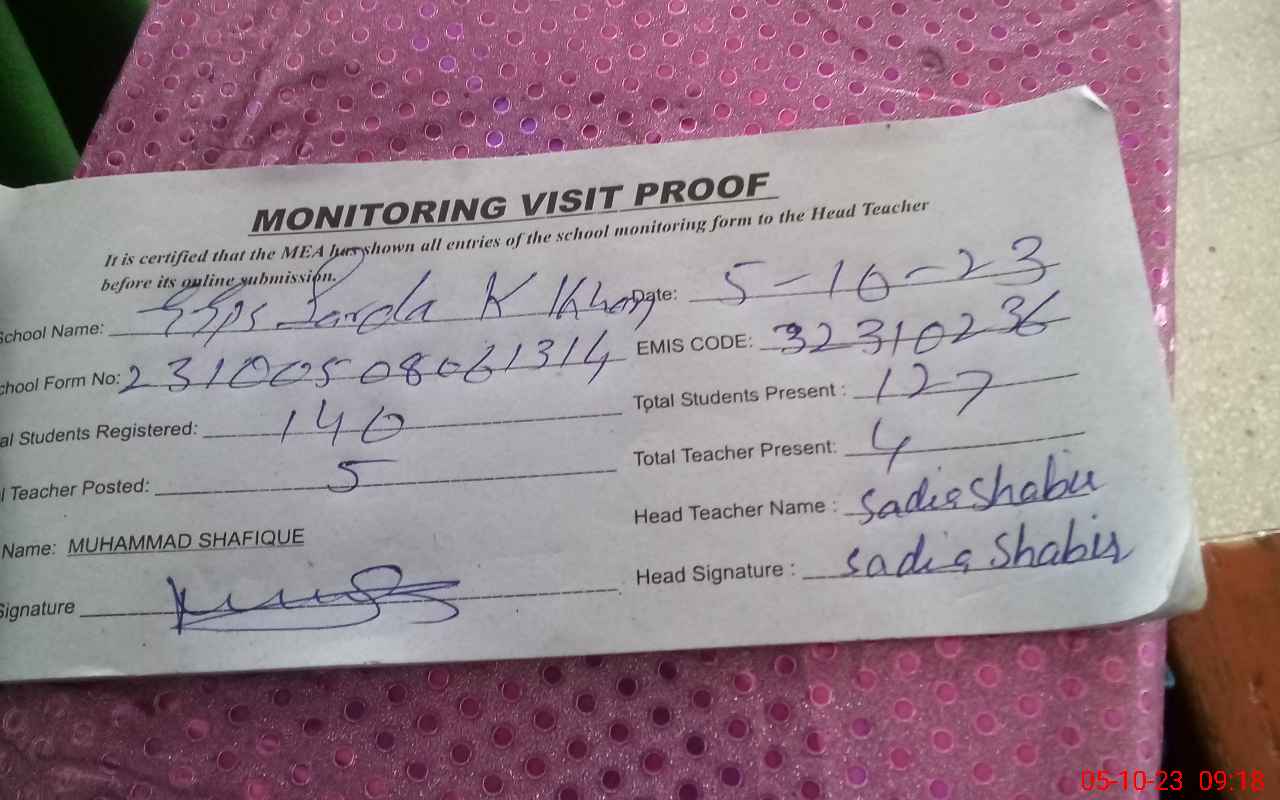 MONITORING VISIT PROOF
It is certified that the MEA has shown all entries of the school monitoring form to the Head Teacher
before its online submission.
School Name: K Khan Date: 5-10-23
chool Form No: 23100508061314 EMIS CODE: 32310236
al Students Registered: 140 Total Students Present : 127
l Teacher Posted: 5 Total Teacher Present: 4
Name: MUHAMMAD SHAFIQUE Head Teacher Name : Sadia Shabir
Signature Head Signature : Sadia Shabir
05-10-23 09:18